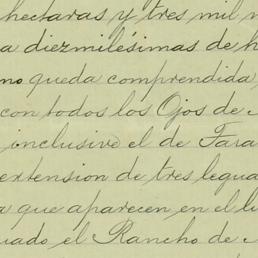 hectaras y tres mil
a diezmilésimas de h
mo queda comprendida
con todos los Ojos de
inclusive el de Tara
extension de tres legua
a que aparecen en el li
uado el Rancho de